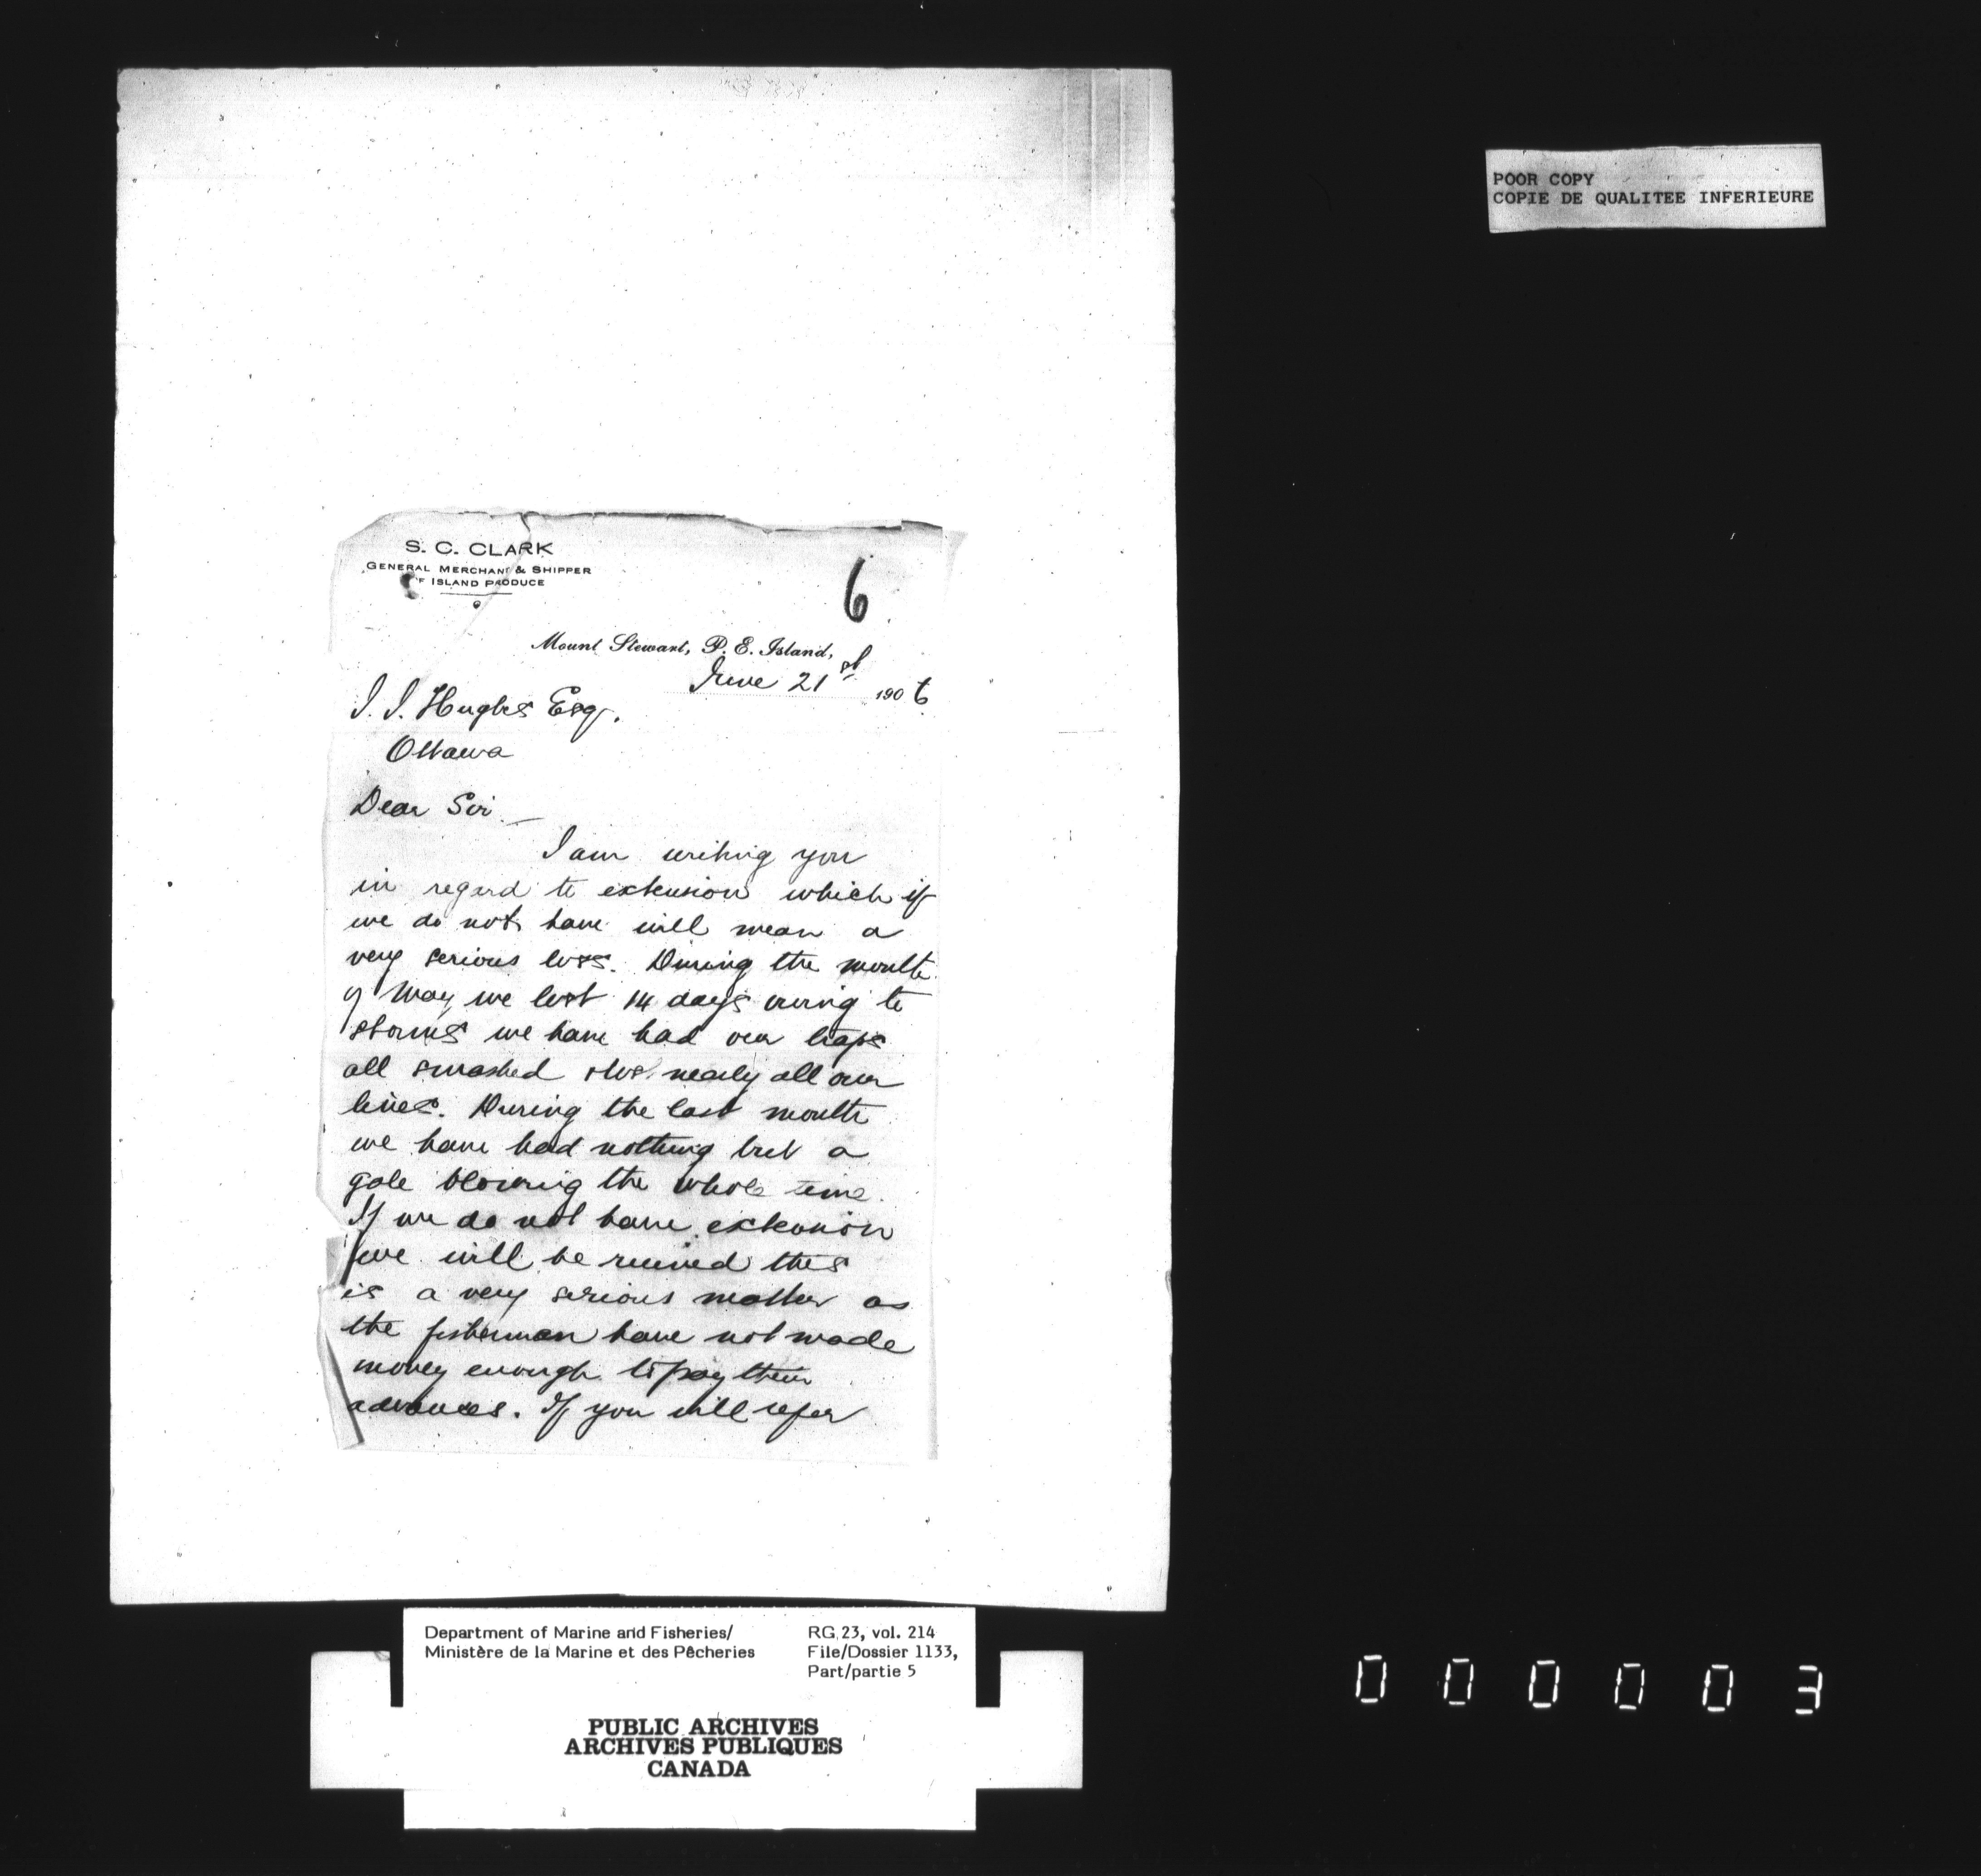 POOR COPY
COPIE DE QUALITEE INFERIEURE
S. C. CLARK
GENERAL MERCHANT & SHIPPER
OF ISLAND PRODUCE
6
Mount Stewart, P. E. Island,
June 21st 1906
J. J. Hughes Esq.
Ottawa
Dear Sir
I am writing you
in regard to extension which if
we do not have will mean a
very serious loss. During the month
of May we lost 14 days owing to
storms we have had our traps
all smashed nearly all our
lines. During the last month
we have had nothing but a
gale blowing the whole time.
If we do not have extension
we will be ruined this
is a very serious matter as
the fisherman have not made
money enough to pay their
advances. If you will refer
Department of Marine and Fisheries/
Ministère de la Marine et des Pêcheries
RG 23, vol. 214
File/Dossier 1133,
Part/partie 5
PUBLIC ARCHIVES
ARCHIVES PUBLIQUES
CANADA
000003